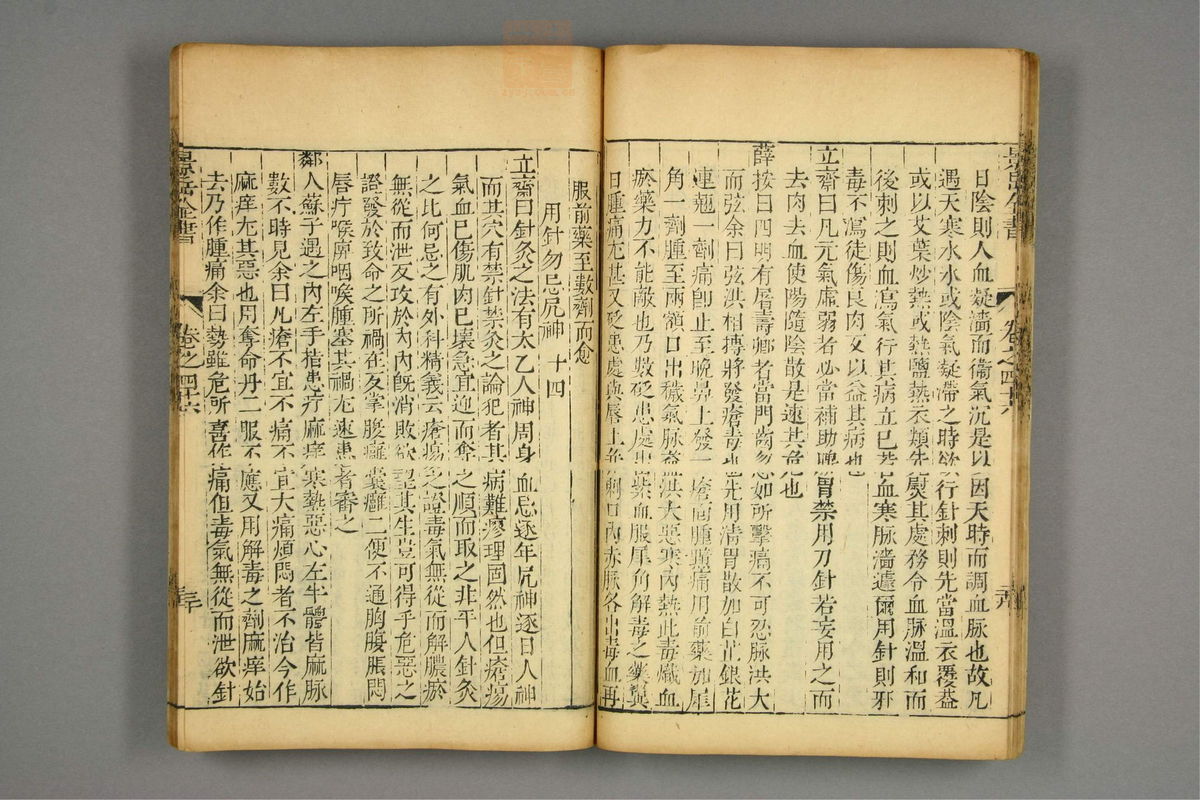 日陰則人血凝濇而衞氣沉是以因天時而調血脉也故凡
遇天寒水冰或陰氣凝滯之時欲行針刺則先當溫衣覆蓋
或以艾葉炒熱或熱鹽熱衣類先熨其處務令血脉溫和而
後刺之則血瀉氣行其病立已若血寒脉濇遽爾用針則邪
毒不瀉徒傷良肉反以益其病也
立齋曰凡元氣虛弱者必當補助脾胃禁用刀針若妄用之而
去肉去血使陽隨陰散是速其危也
薛按曰四明有屠壽卿者當門齒忽如所擊痛不可忍脉洪大
而弦余曰弦洪相搏將發瘡毒也先用清胃散加白芷銀花
連翹一劑痛卽止至晚鼻上發一瘡面腫黯痛用前藥加犀
角一劑腫至兩額口出穢氣脉益洪大惡寒內熱此毒熾血
瘀藥力不能敵也乃數砭患處出紫血服犀角解毒之藥與
日腫痛尤甚又砭患處與唇上并刺口內赤脉各出毒血再
服前藥至數劑而愈
用針勿忌尻神 十四
立齋曰針灸之法有太乙人神周身血忌逐年尻神逐日人神
而其穴有禁針禁灸之論犯者其病難瘳理固然也但瘡瘍
氣血已傷肌肉已壞急宜迎而奪之順而取之非平人針灸
之比何忌之有外科精義云瘡瘍之證毒氣無從而解膿瘀
無從而泄反攻於內內旣消敗欲望其生豈可得乎危惡之
證發於致命之所禍在反掌腹癰囊癰二便不通胸腹脹悶
唇疔喉屏咽喉腫塞其禍尤速患者審之
鄰人蘇子遇之內左手指患疔麻痒寒熱惡心左半體皆麻脉
數不時見余曰凡瘡不宜不痛不宜大痛煩悶者不治今作
麻痒尤其惡也用奪命丹二服不應又用解毒之劑麻痒始
去乃作腫痛余曰勢雖危所喜作痛但毒氣無從而泄欲針
景岳全書
卷之四十六